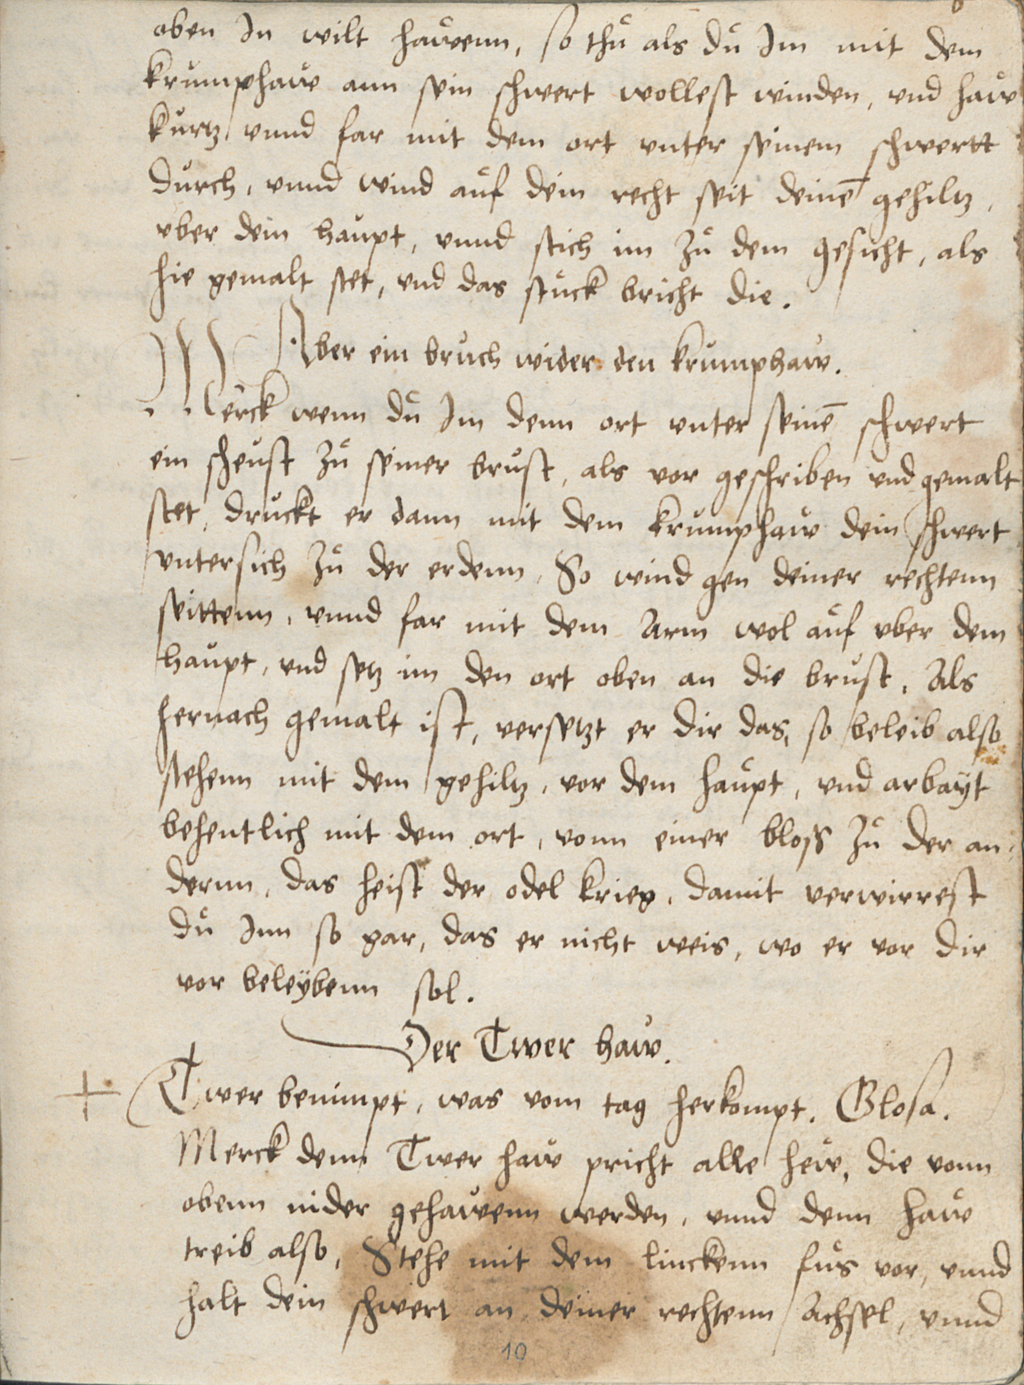 oben In wilt hawenn, so thů als dů Im mit dem
krumphaw ann sein schwert wollest winden, vnd haw
kurtz vnnd far mit dem ort vnter seinem schwertt
durch, vnnd wind auf dein recht seit deinē gehiltz,
vber dein haupt, vnnd stich im Zů dem gesicht, als
hie gemalt stet, vnd das stůck bricht die.
Aber ein bruch wider den krumphaw.
Merck wenn dů Im denn ort vnter seinē schwert
ein scheust Zů seiner brust, als vor geschriben vnd gemalt
stet, druckt er dann mit dem krumphaw dein schwert
vntersich Zů der erdenn, So wind gen deiner rechtenn
seittenn, vnnd far mit dem Arm wol auf vber dem
haupt, vnd setz im den ort oben an die brust, Als
hernach gemalt ist, versetzt er dir das, so beleib also
stehenn mit dem gehiltz, vor dem haupt, vnd arbayt
behentlich mit dem ort, vonn einer bloss Zů der an-
dernn, das heist der odel krieg, damit verwirrest
dů Inn so gar, das er nicht weis, wo er vor dir
vor beleÿbenn sol.
Der Twer haw.
Twer benimpt, was vom tag herkompt. Glosa.
Merck denn Twer haw pricht alle hew, die vonn
obenn nider gehawenn werden, vnnd denn haw
treib also, Stehe mit dem linckenn fůs vor, vnnd
halt dein schwert an deiner rechtenn Achsel, vnnd
10